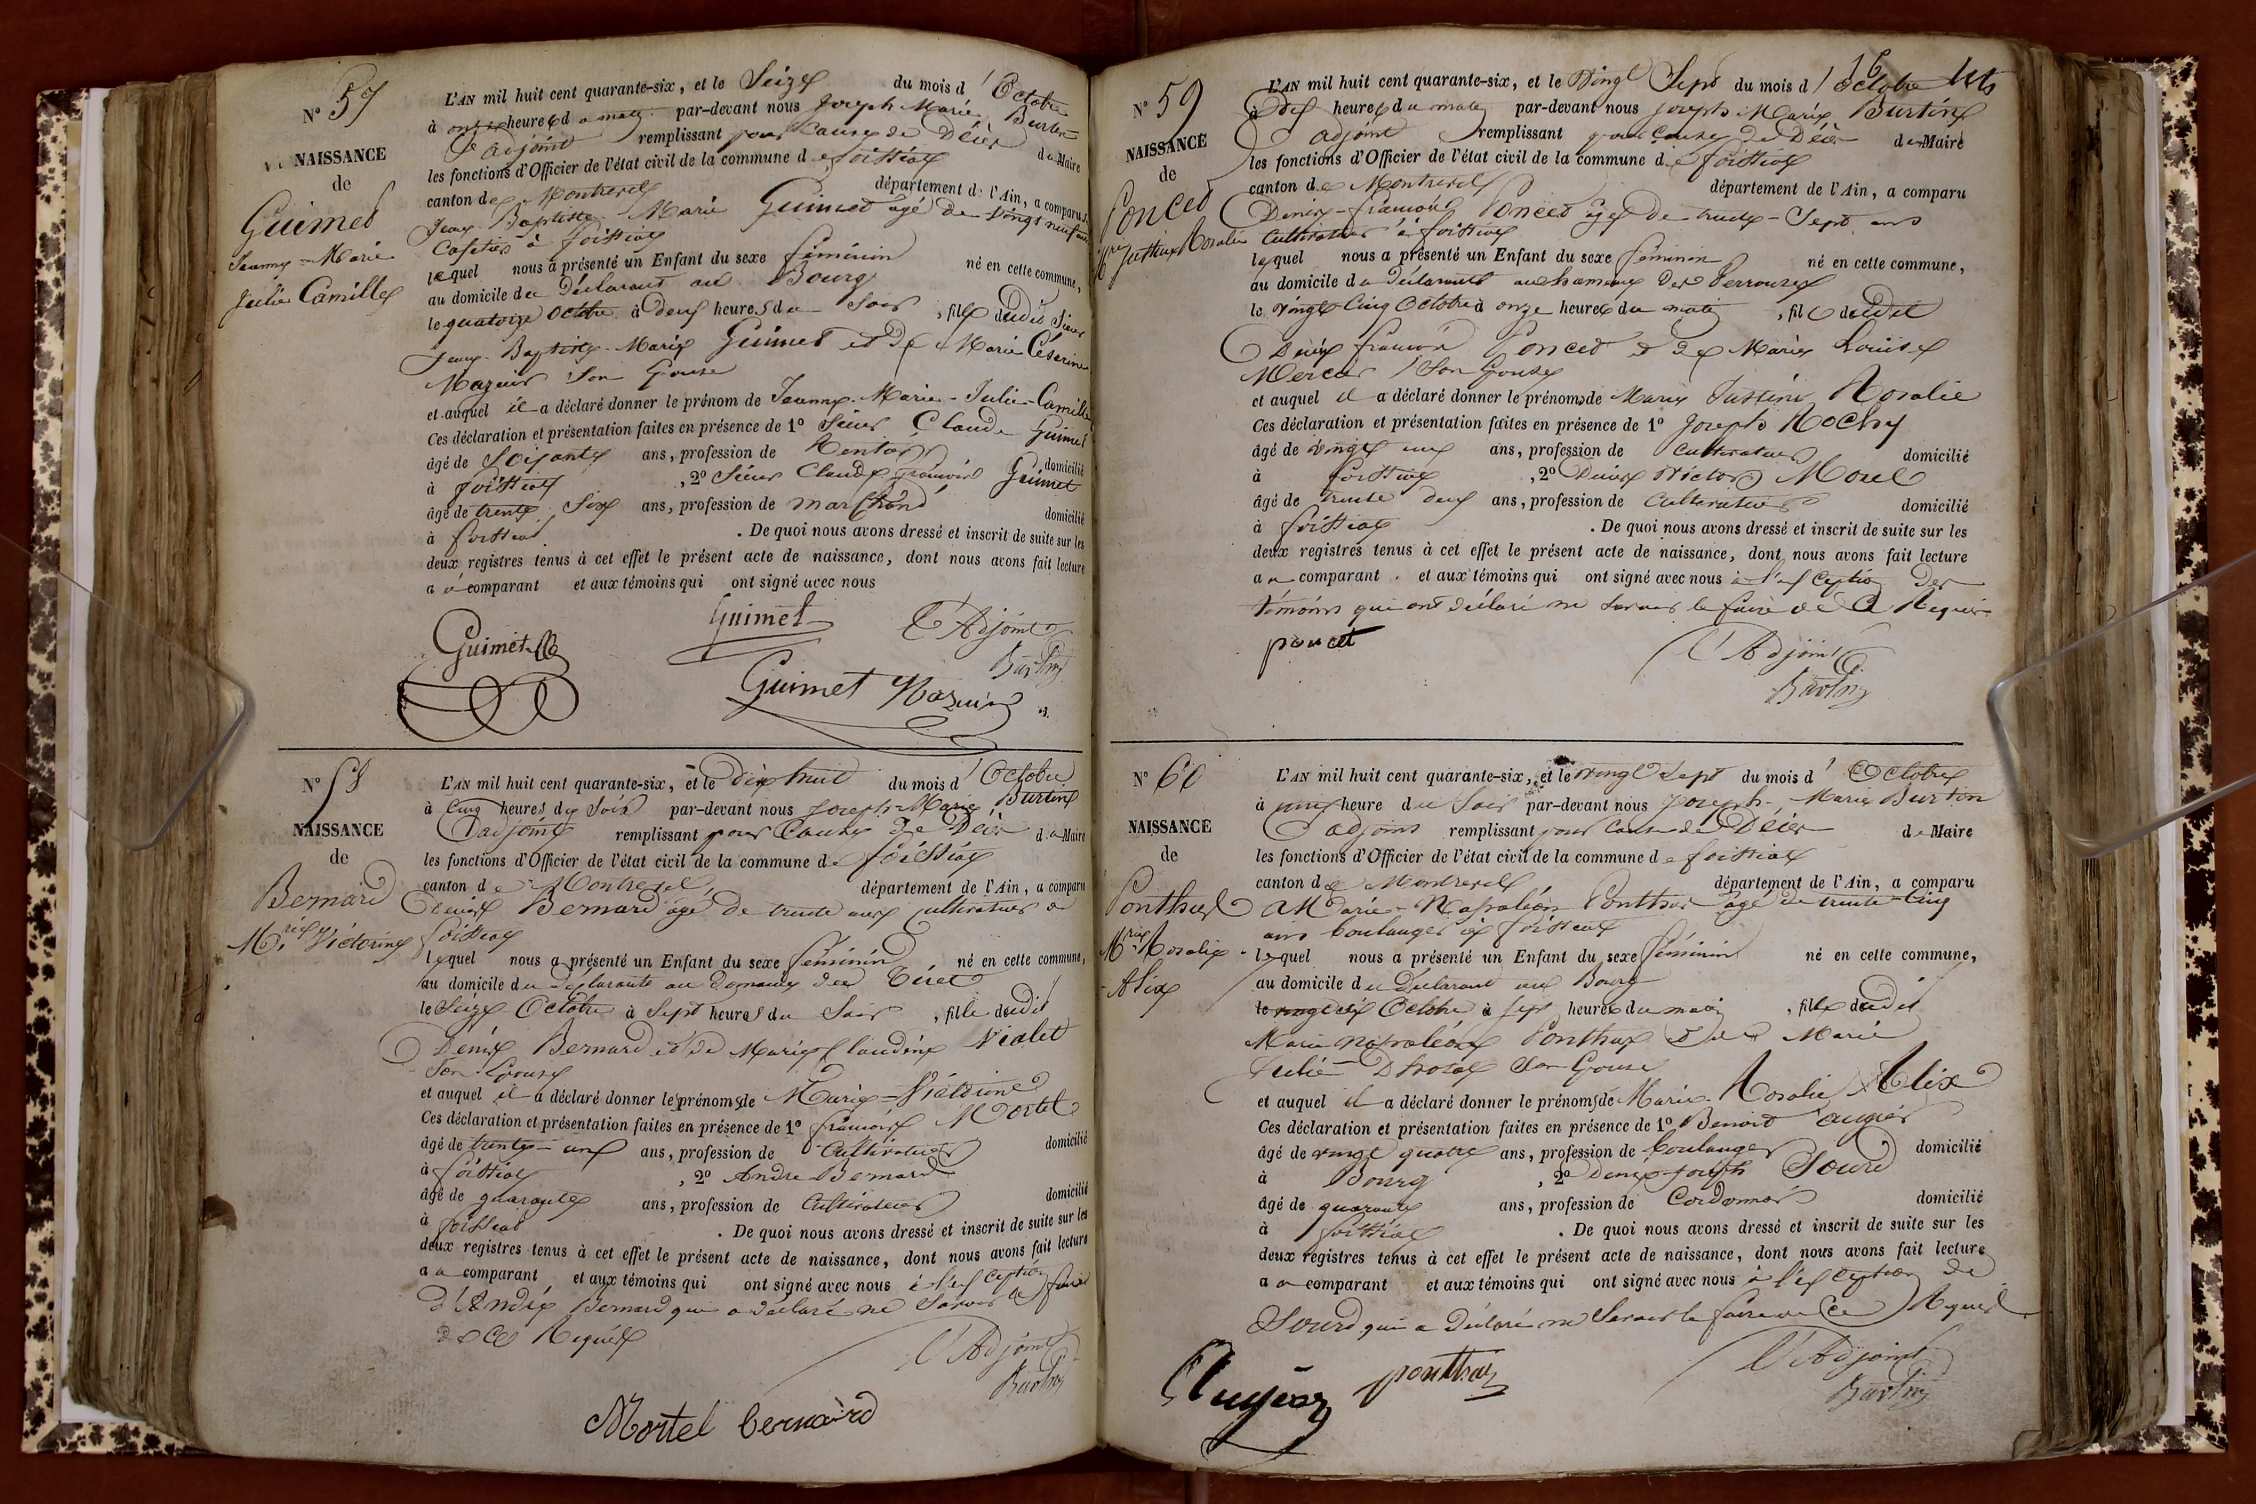 N° 57
NAISSANCE
de
Guimet
Jeanne-Marie
Julie Camille
L'AN mil huit cent quarante-six, et le Seize du mois d'Octobre
à onze heures du matin par-devant nous Joseph Marie Burtin
adjoint remplissant pour cause de Décès du Maire
les fonctions d'Officier de l'état civil de la commune de foissiat
canton de Montrevel département de l'Ain, a comparu
Jean Baptiste Marie Guimet âgé de Vingt neuf ans
Cafetier à foissiat
lequel nous a présenté un Enfant du sexe féminin né en cette commune,
au domicile du Déclarant au Bourg
le quatorze Octobre à Deux heures du Soir, fille dudit Sieur
Jean-Baptiste-Marie Guimet et de Marie Césarine
Mazuir Son Epouse
et auquel il a déclaré donner le prénom de Jeanne-Marie-Julie-Camille
Ces déclaration et présentation faites en présence de 1° Sieur Claude Guimet
âgé de Soixante ans, profession de Rentier domicilié
à foissiat, 2° Sieur Claude françois Guimet
âgé de trente Six ans, profession de marchand domicilié
à foissiat. De quoi nous avons dressé et inscrit de suite sur les
deux registres tenus à cet effet le présent acte de naissance, dont nous avons fait lecture
au comparant et aux témoins qui ont signé avec nous
Guimet L'Adjoint
Guimet Burtin
Guimet Mazuir
N° 58
NAISSANCE
de
Bernard
Mrie Victorine
L'AN mil huit cent quarante-six, et le dix huit du mois d'Octobre
à Cinq heures du Soir par-devant nous Joseph-Marie Burtin
adjoint remplissant pour Cause de Décès du Maire
les fonctions d'Officier de l'état civil de la commune de foissiat
canton de Montrevel département de l'Ain, a comparu
Denis Bernard âgé de trente ans Cultivateur à
foissiat
lequel nous a présenté un Enfant du sexe féminin né en cette commune,
au domicile du déclarant au Domaine du Tiret
le Seize Octobre à Sept heures du Soir, fille dudit
Denis Bernard et de Marie Claudine Vialet
Son Epouse
et auquel il a déclaré donner le prénoms de Marie-Victorine
Ces déclaration et présentation faites en présence de 1° françois Mortel
âgé de trente-un ans, profession de Cultivateur domicilié
à foissiat, 2° André Bernard
âgé de quarante ans, profession de Cultivateur domicilié
à foissiat. De quoi nous avons dressé et inscrit de suite sur les
deux registres tenus à cet effet le présent acte de naissance, dont nous avons fait lecture
au comparant et aux témoins qui ont signé avec nous à l'exception
d'André Bernard qui a déclaré ne Savoir le faire
de ce Requis
L'Adjoint
Burtin
Mortel bernard
16
N° 59
NAISSANCE
de
Poncet
Mrie Justine Rosalie
L'AN mil huit cent quarante-six, et le Vingt Sept du mois d'octobre
à Dix heures du matin par-devant nous Joseph-Marie Burtin
adjoint remplissant pour Cause de Décès du Maire
les fonctions d'Officier de l'état civil de la commune de foissiat
canton de Montrevel département de l'Ain, a comparu
Denis-françois Poncet âgé de trente-Sept ans
Cultivateur à foissiat
lequel nous a présenté un Enfant du sexe féminin né en cette commune,
au domicile du Déclarant au hameau des Perrouses
le Vingt Cinq Octobre à onze heures du matin, fille dudit
Denis françois Poncet et de Marie Louise
Mercier Son Epouse
et auquel il a déclaré donner le prénoms de Marie Justine Rosalie
Ces déclaration et présentation faites en présence de 1° Joseph Rochy
âgé de Vingt un ans, profession de Cultivateur domicilié
à foissiat, 2° Denis Victor Morel
âgé de trente deux ans, profession de Cultivateur domicilié
à foissiat. De quoi nous avons dressé et inscrit de suite sur les
deux registres tenus à cet effet le présent acte de naissance, dont nous avons fait lecture
au comparant et aux témoins qui ont signé avec nous à l'exception des
témoins qui ont déclaré ne Savoir le faire de ce Requis
poncet
L'Adjoint
Burtin
N° 60
NAISSANCE
de
Ponthus
Mrie Rosalie
Alix
L'AN mil huit cent quarante-six, et le Vingt Sept du mois d'Octobre
à une heure du Soir par-devant nous Joseph-Marie Burtin
adjoint remplissant pour Cause de Décès du Maire
les fonctions d'Officier de l'état civil de la commune de foissiat
canton de Montrevel département de l'Ain, a comparu
Marie-Napoléon Ponthus âgé de trente-Cinq
ans boulanger à foissiat
lequel nous a présenté un Enfant du sexe féminin né en cette commune,
au domicile du Déclarant au Bourg
le vingt six Octobre à Sept heures du matin, fille dudit
Marie napoléon Ponthus et de Marie
Julie Son Epouse
et auquel il a déclaré donner le prénoms de Marie Rosalie Alix
Ces déclaration et présentation faites en présence de 1° Benoit Augier
âgé de vingt quatre ans, profession de boulanger domicilié
à Bourg, 2° Denis-Joseph Sourd
âgé de quarante ans, profession de Cordonnier domicilié
à foissiat. De quoi nous avons dressé et inscrit de suite sur les
deux registres tenus à cet effet le présent acte de naissance, dont nous avons fait lecture
au comparant et aux témoins qui ont signé avec nous à l'exception de
Sourd qui a Déclaré ne Savoir le faire de ce Requis
L'Adjoint
Augier ponthus Burtin